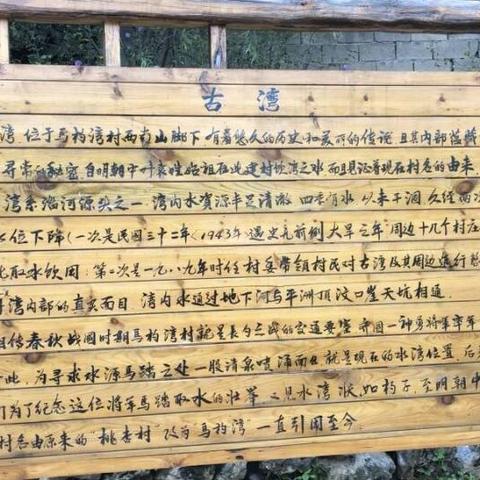 古湾
湾 位于马杓湾村西南山脚下 有着悠久的历史和美丽的传说 且其内部蕴藏
寻常的秘密 自明朝中叶袁姓始祖在此建村饮湾之水 而且见证着现在村名的由来
湾系淄河源头之一 湾内水资源丰足清澈 四季有水 从来干涸 久经两次
位下降(一次是民国三十二年(1943年遇史无前例大旱之年 周边十几个村庄
取水饮用. 第二次是一九八九年时任村委带领村民对古湾及其周边进行
湾内部的真实面目 湾内水通过地下河与平洲顶汶口崖天坑相通.
相传春秋战国时期马杓湾村就是长勺之战的交通要塞 齐国一神勇将军率军
此, 为寻求水源马踏之处一股清泉喷涌而出就是现在的水湾位置, 后
们为了纪念这位将军马踏取水的壮举 又见水湾状如杓子, 至明朝中
村名由原来的"桃杏村"改为马杓湾 一直引用至今.